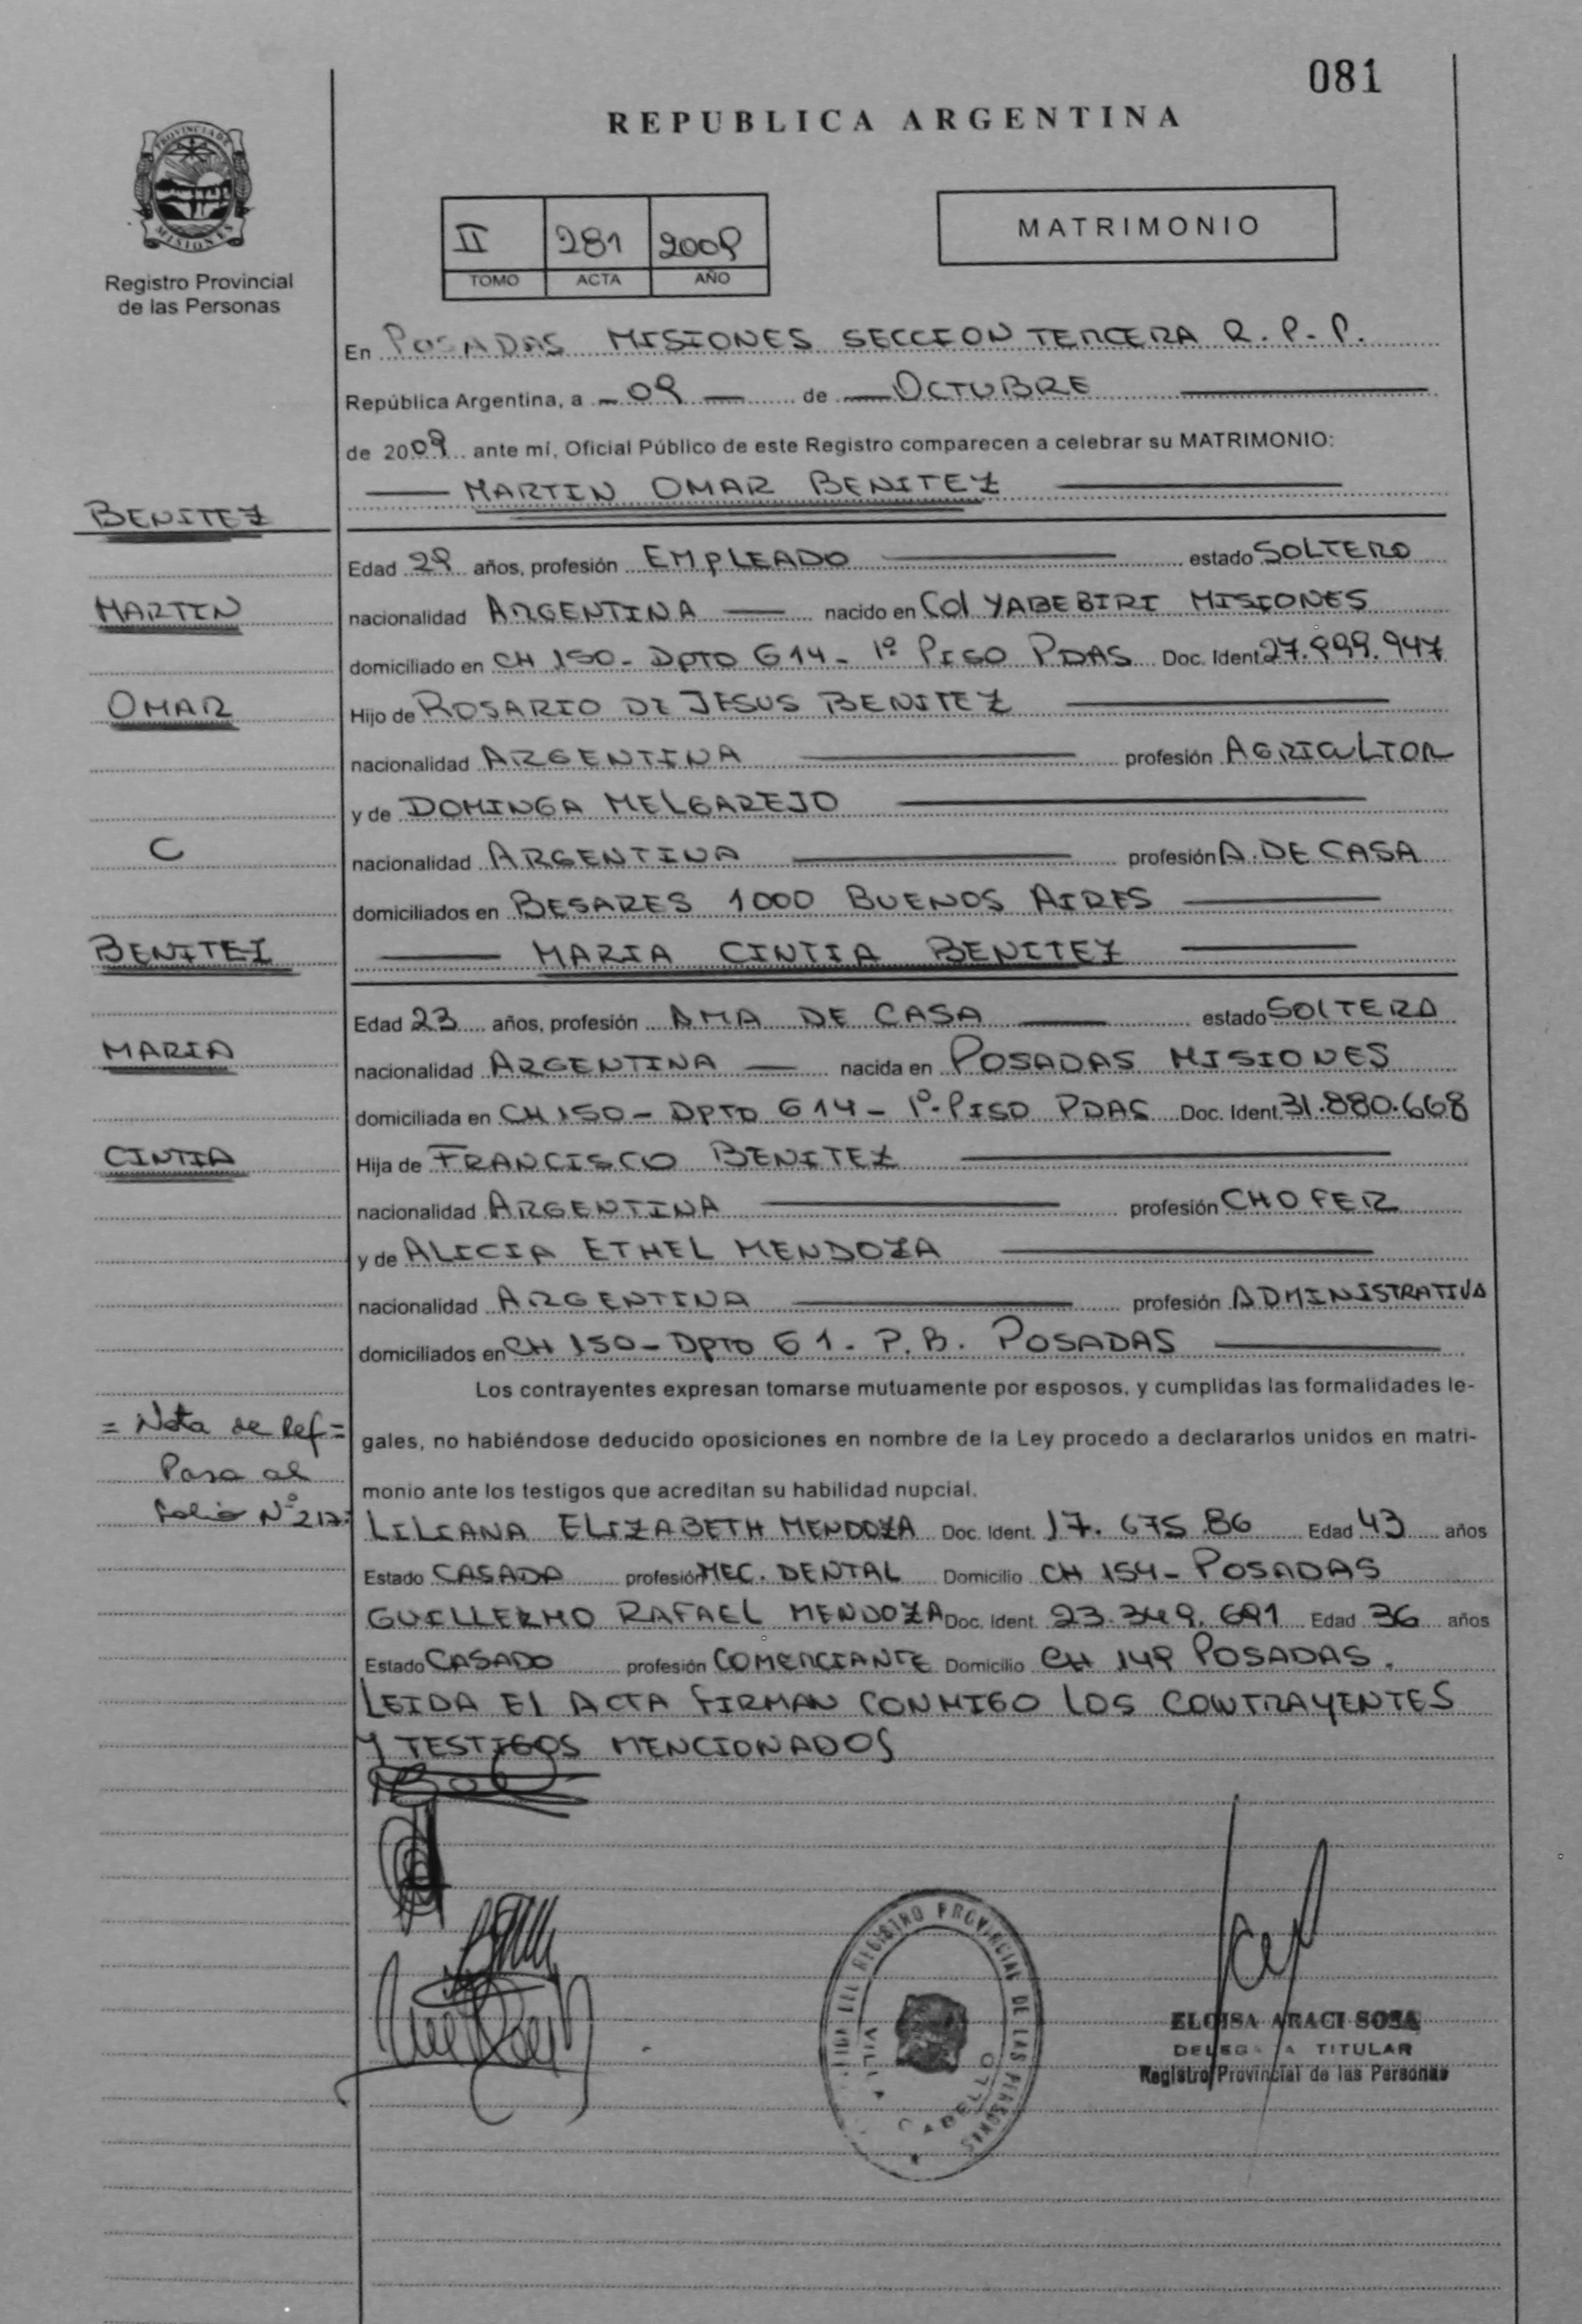 081
REPUBLICA ARGENTINA
PROVINCIA DE
MISIONES
Registro Provincial
de las Personas
II 281 2009
TOMO ACTA AÑO
MATRIMONIO
En POSADAS MISIONES SECCION TERCERA R.P.P.
República Argentina, a - 09 — de — OCTUBRE
de 2009 ante mí, Oficial Público de este Registro comparecen a celebrar su MATRIMONIO:
MARTIN OMAR BENITEZ
BENITEZ
Edad 29 años, profesión EMPLEADO estado SOLTERO
MARTIN
nacionalidad ARGENTINA — nacido en Col YABEBIRI MISIONES
domiciliado en CH 150- DPTO G14- 1º PISO PDAS Doc. Ident 27.999.947
OMAR
Hijo de ROSARIO DE JESUS BENITEZ
nacionalidad ARGENTINA profesión AGRICULTOR
y de DOMINGA MELGAREJO
C
nacionalidad ARGENTINA profesión A. DE CASA
domiciliados en BESARES 1000 BUENOS AIRES
BENITEZ
MARIA CINTIA BENITEZ
Edad 23 años, profesión AMA DE CASA estado SOLTERA
MARIA
nacionalidad ARGENTINA — nacida en POSADAS MISIONES
domiciliada en CH 150- DPTO G14- 1º-PISO PDAS Doc. Ident. 31.880.668
CINTIA
Hija de FRANCISCO BENITEZ
nacionalidad ARGENTINA profesión CHOFER
y de ALICIA ETHEL MENDOZA
nacionalidad ARGENTINA profesión ADMINISTRATIVA
domiciliados en CH 150- DPTO G1- P.B. POSADAS
Los contrayentes expresan tomarse mutuamente por esposos, y cumplidas las formalidades le-
= Nota de Ref =
gales, no habiéndose deducido oposiciones en nombre de la Ley procedo a declararlos unidos en matri-
Pasa al
monio ante los testigos que acreditan su habilidad nupcial.
folio Nº
LILIANA ELIZABETH MENDOZA Doc. Ident. 17.675.86 Edad 43 años
Estado CASADA profesión MEC. DENTAL Domicilio CH 154- POSADAS
GUILLERMO RAFAEL MENDOZA Doc. Ident. 23.349.691 Edad 36 años
Estado CASADO profesión COMERCIANTE Domicilio CH 149 POSADAS.
LEIDA El ACTA FIRMAN CONMIGO LOS CONTRAYENTES
Y TESTIGOS MENCIONADOS
REGISTRO PROVINCIAL DE LAS PERSONAS
VILLA CABELLO
ELOISA ARACI SOSA
DELEGADA TITULAR
Registro Provincial de las Personas